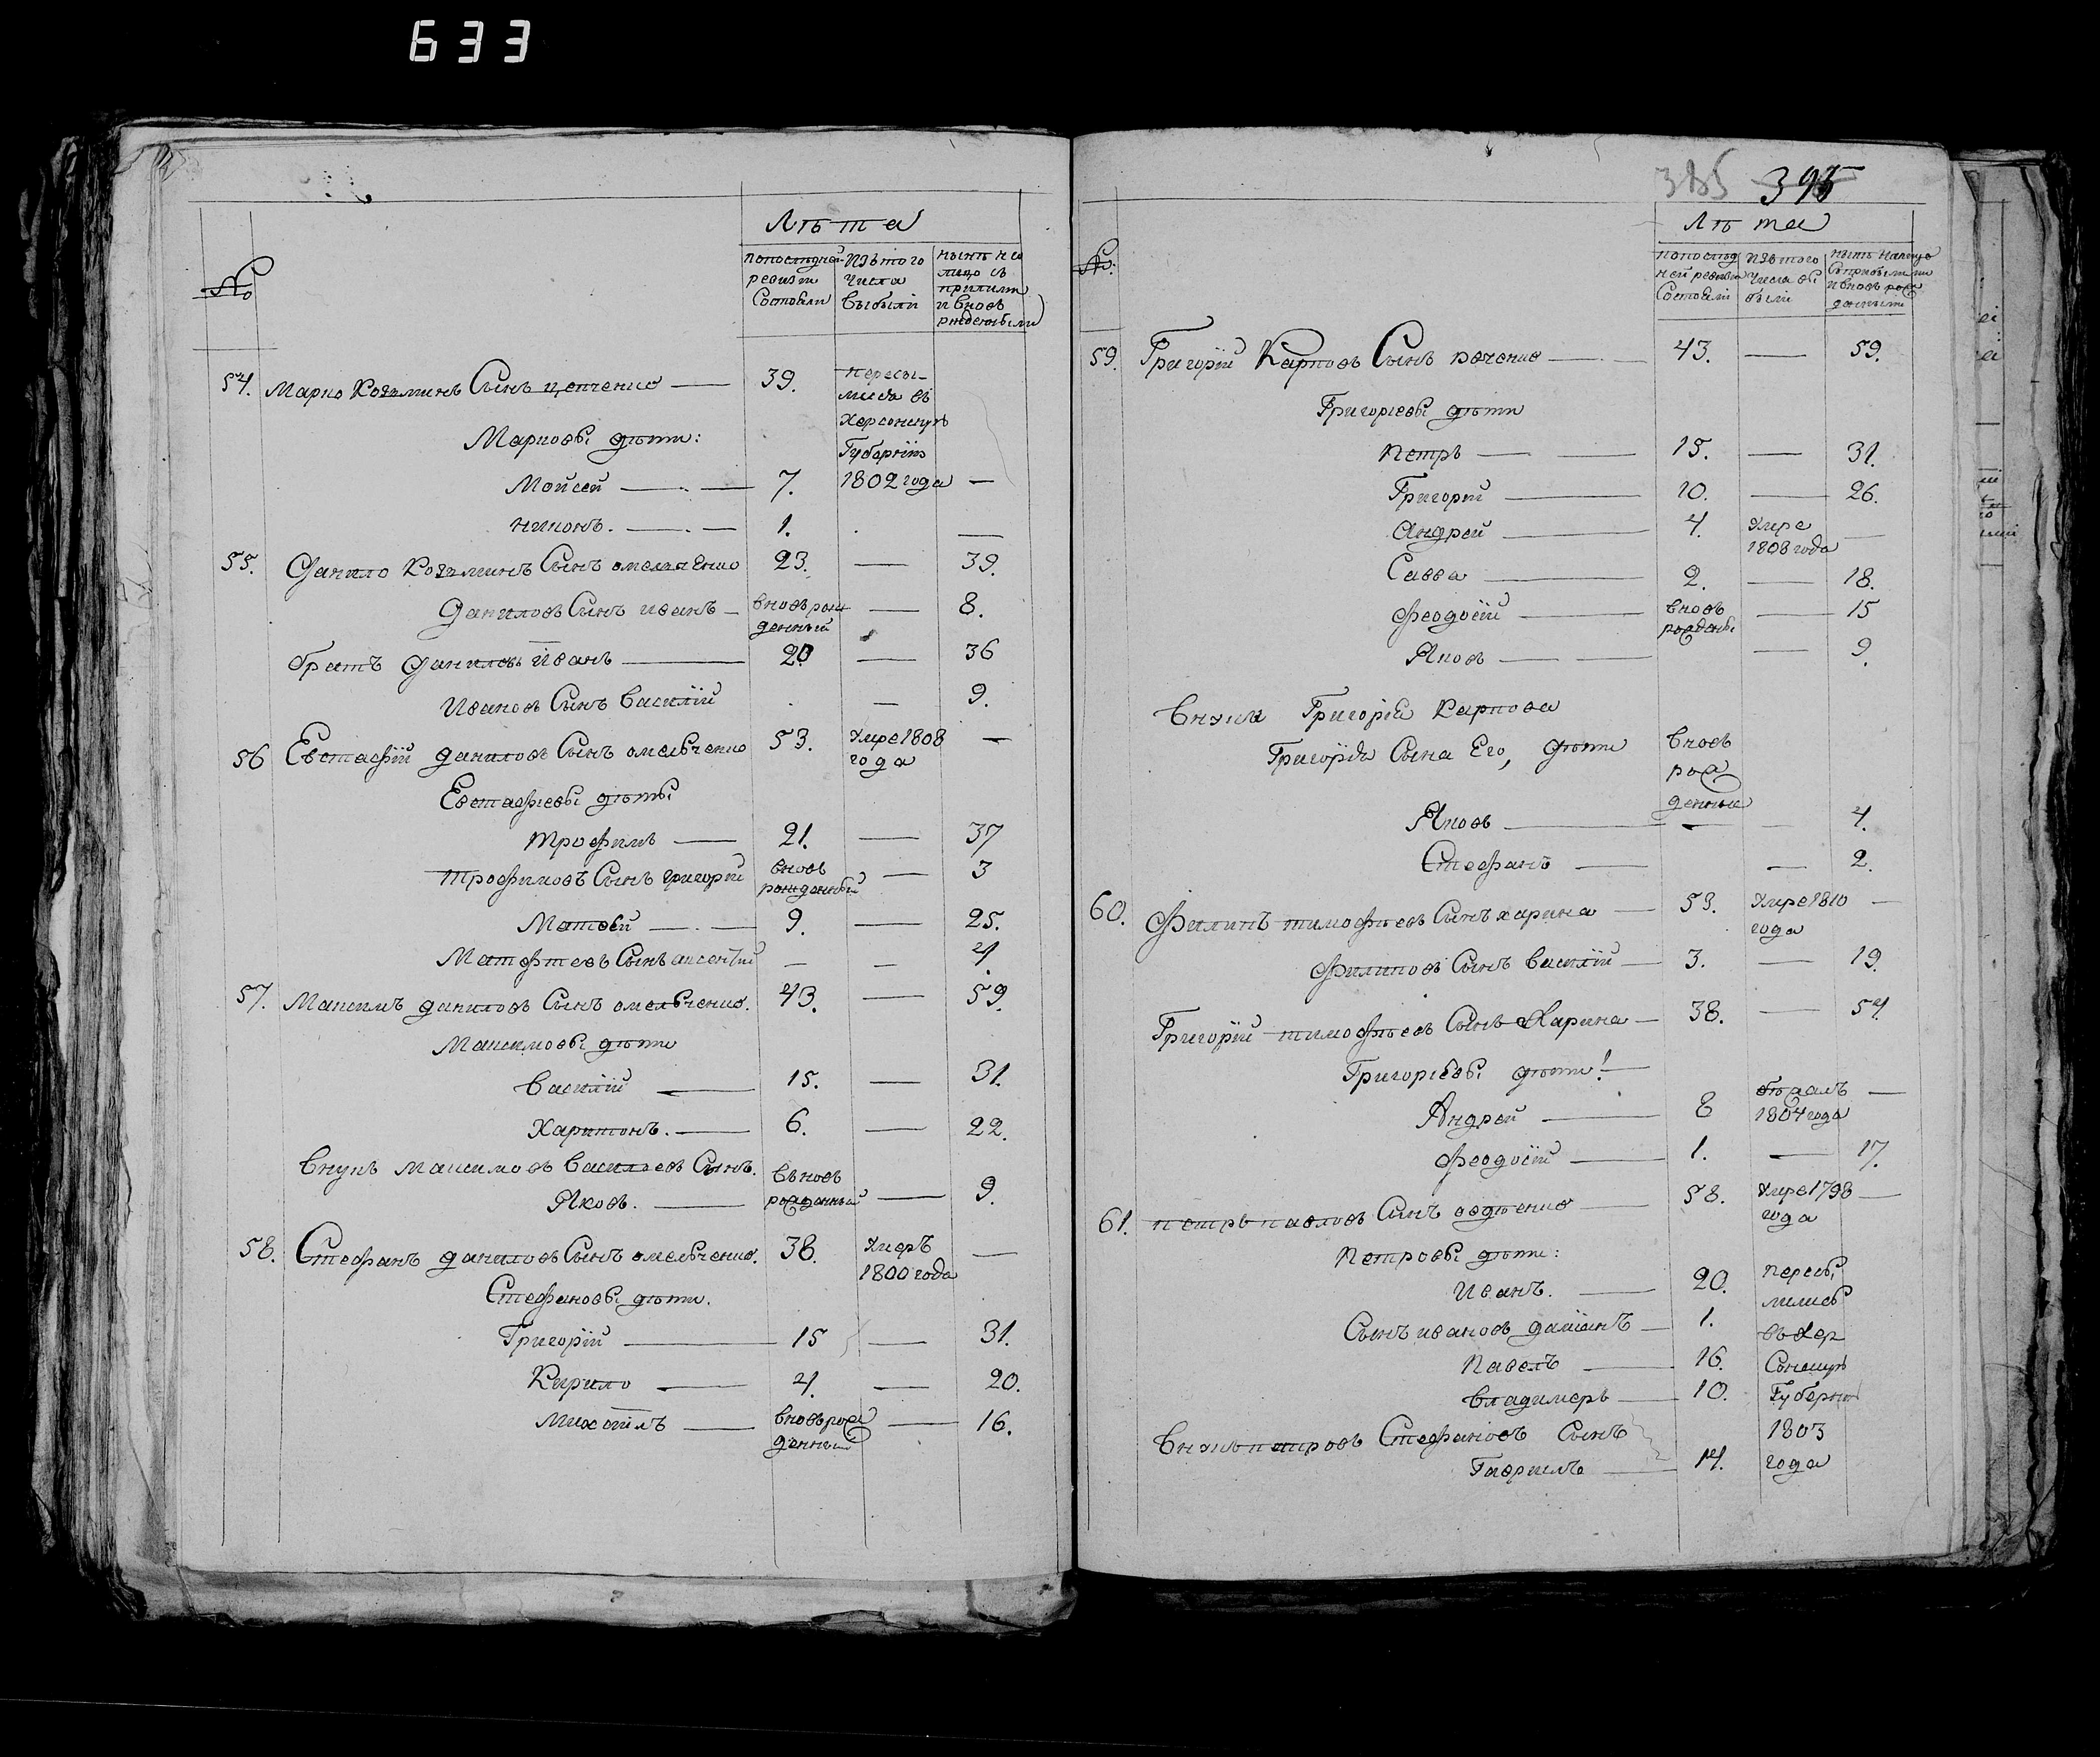 633
Лѣта
№
попослѣдней ревизіи состояли
изъ того числа выбыли
нынѣ на лицо съ прибылыми и вновь рожденными
54. Марко Козьминъ Сынъ — 39. Пересы-
лился въ
Херсонскую
Марковы дѣти: Губернію
Мойсей — 7. 1802 года —
Никонъ. — 1. —
55. Данило Козьминъ Сынъ омельченко 23. — 39.
Даниловъ Сынъ иванъ — вновь рож
денный — 8.
братъ Даниловъ Иванъ — 20 — 36
Ивановъ Сынъ василій — 9.
56 Евстафій даниловъ Сынъ омельченко 53. Умре 1808
года —
Евстафіевы дѣти
трофимъ — 21. — 37
трофимовъ Сынъ григорій вновь
рожденный — 3
Матвей — 9. — 25.
Матфѣевъ Сынъ — — 4.
57. Максимъ даниловъ Сынъ омельченко. 43. — 59.
Максимовы дѣти
василій — 15. — 31.
Харитонъ. — 6. — 22.
внукъ максимовъ васильевъ Сынъ.
Яковъ. — въновь
рожденный — 9.
58. Стефанъ даниловъ Сынъ омельченко. 38. Умеръ
1800 года —
Стефановы дѣти.
Григорій — 15 — 31.
Кирило — 4. — 20.
михаилъ — вновь рож
денный — 16.
385 395
Лѣта
№:
попослѣд
ней ревизіи
состояли
изъ того
числа вы
были
нынѣ налицо
съ прибылыми
и вновь рож
данными
59. Григорій Карповъ Сынъ — 43. — 59.
Григоріевы дѣти
петръ — 15. — 31.
Григорій — 10. — 26.
андрей — 4. Умре
1808 года —
Савва — 2. — 18.
феодосій — вновь
рожденны — 15
Яковъ — — 9.
внуки Григорія Карпова
Григорія Сына Его, дѣти вновь
рож
денные
Яковъ — — — 4.
Стефанъ — — 2.
60. филипъ тимофѣевъ Сынъ харина — 53. Умре 1810
года —
филиповъ Сынъ василій — 3. — 19.
Григорій тимофѣевъ Сынъ Харина — 38. — 54
Григоріевы дѣти: —
Андрей — 8 бѣжалъ
1804 года —
феодосій — 1. — 17.
61. петръ павловъ Сынъ — 58. Умре 1798
года —
Петровы дѣти:
иванъ. — 20. пересы
лились
Сынъ ивановъ даміанъ — 1. въ Хер
павелъ — 16. Сонскую
владимеръ — 10. Губернію
внукъ петровъ Стефановъ Сынъ 1803
Гаврилъ — 14. года